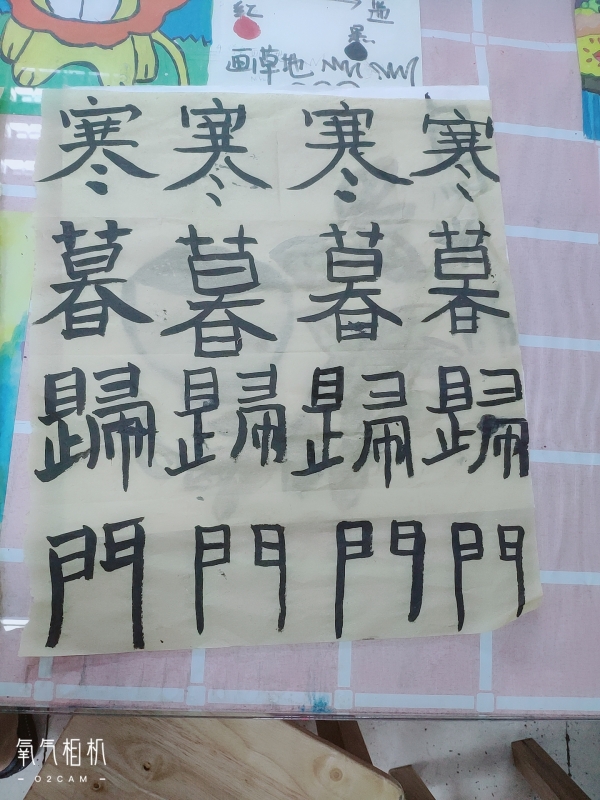 红
黑
画草地
寒寒寒寒
暮暮暮暮
歸歸歸歸
門門門門
氧气相机
- O2CAM -